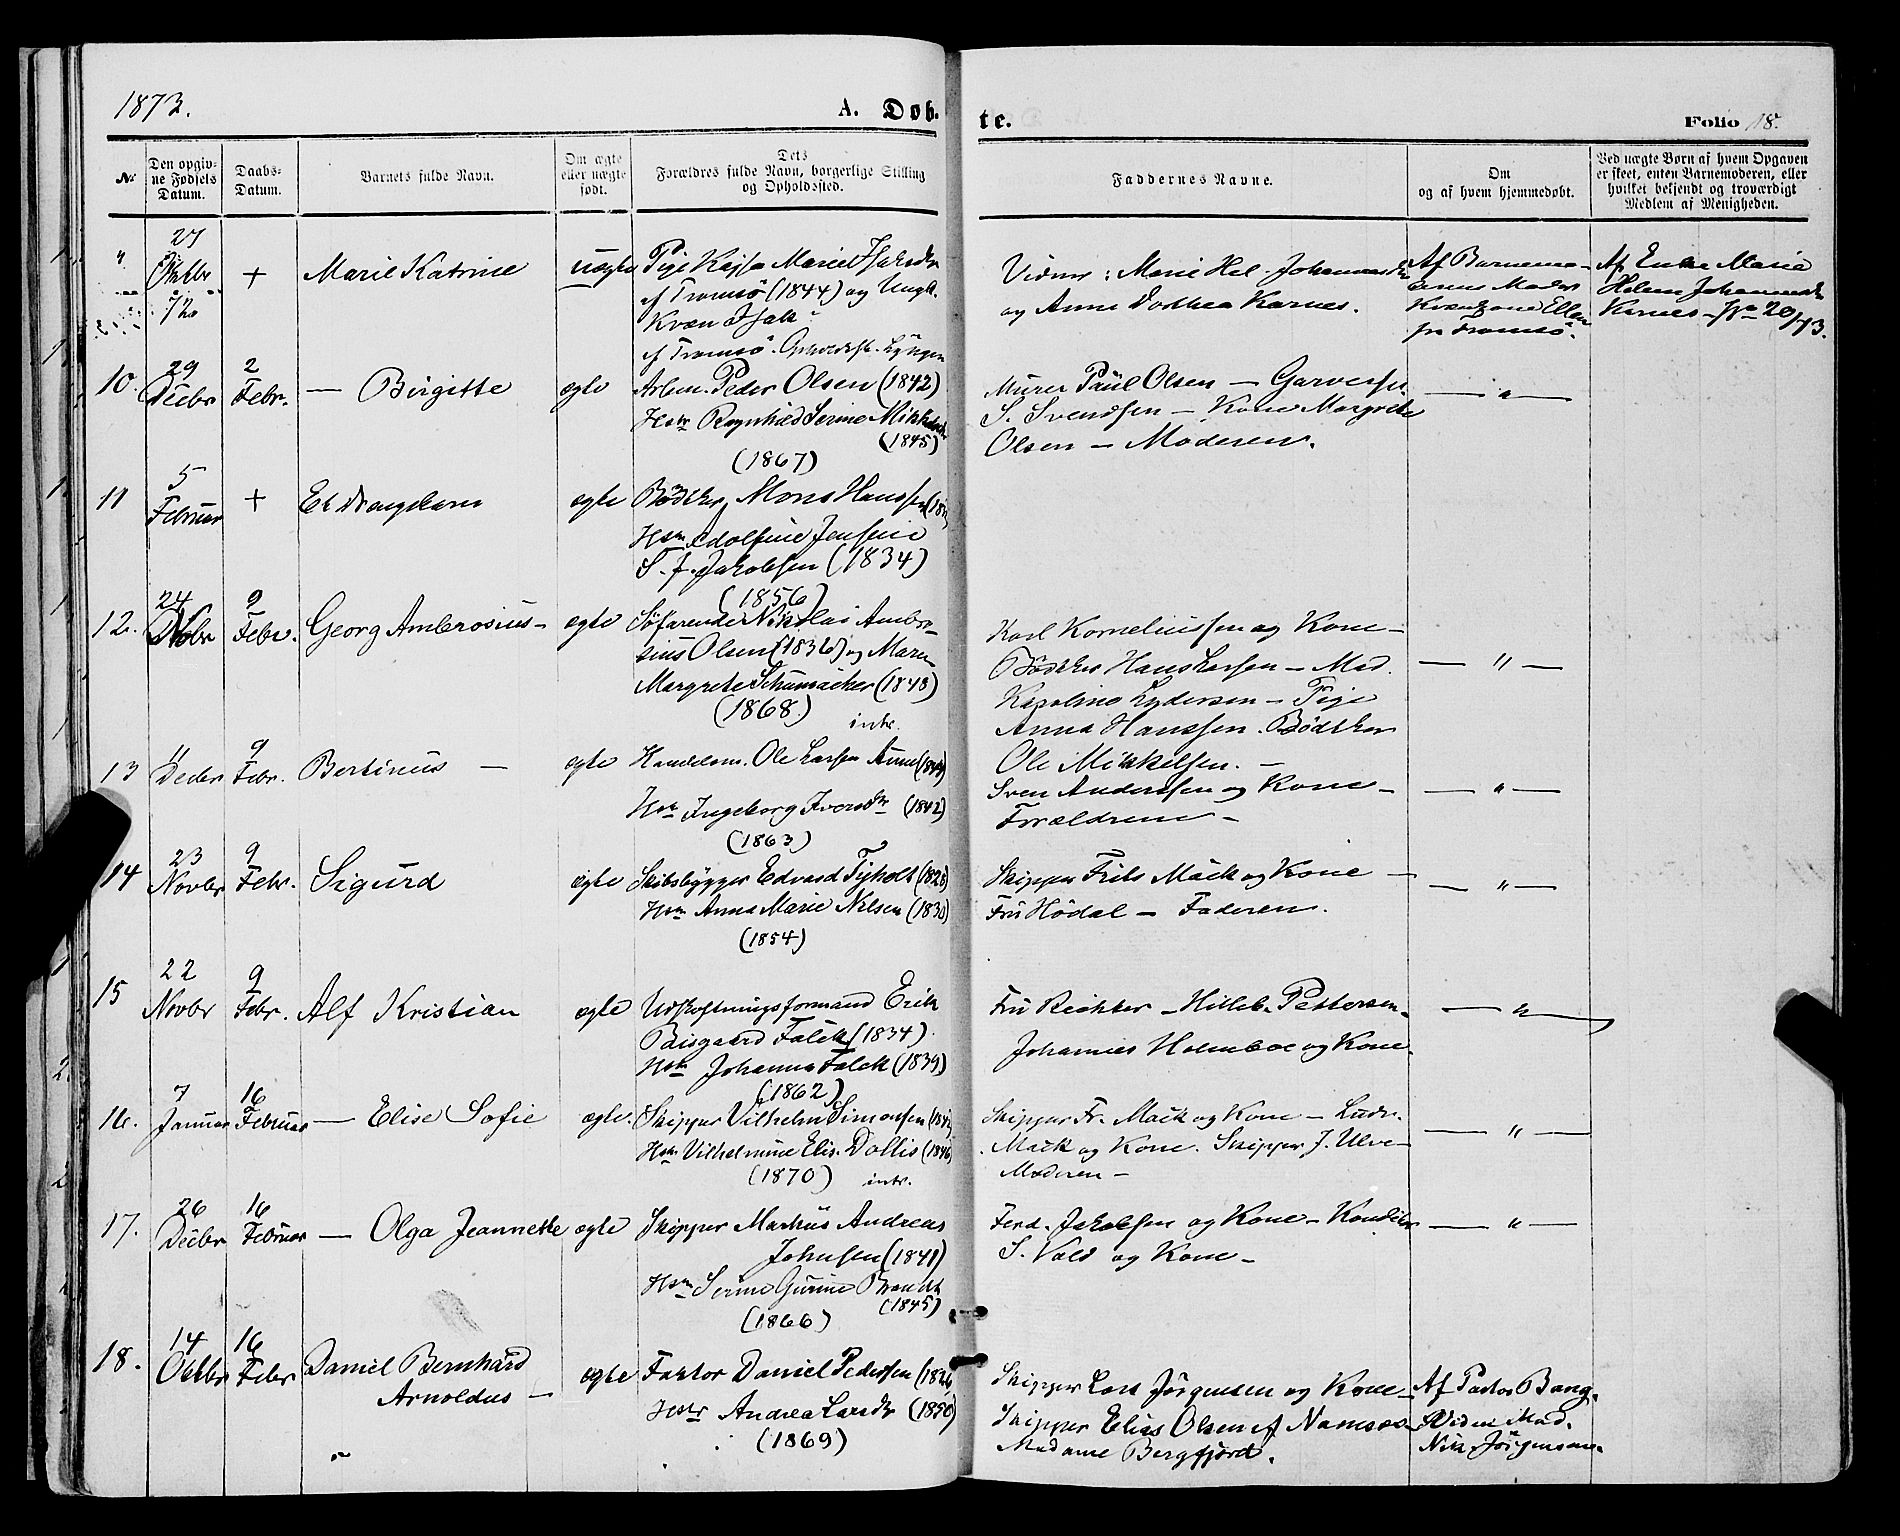 1873.
A. Døb-
te.
Folio 18.
No
Den opgiv-
ne Fødsels
Datum.
Daabs-
Datum.
Barnets fulde Navn.
Om ægte
eller uægte
født.
Dets
Forældres fulde Navn, borgerlige Stilling
og Opholdssted.
Faddernes Navne.
Om
og af hvem hjemmedøbt.
Ved uægte Børn af hvem Opgaven
er skeet, enten Barnemoderen, eller
hvilket bekjendt og troværdigt
Medlem af Menigheden.
"
27
Oktbr
72
+
Marie Katrine
uægte
Pige Kajsa Marie Isaksdr
af Tromsø (1844) og Ungk.
Kvæn Isak
af Tromsø. Lyngen
Vidner: Marie Hel. Johannesdr
og Anne Dorthea Karnes.
Af Barnemo-
Moder
Kvænkone Ellen
fra Tromsø.
Af Enke Marie
Helene Johannesdr
Karnes
10.
29
Decbr
2
Febr.
— Birgitte
ægte
Arbm. Peder Olsen (1842)
Hstr Regnhild Serine Mikkelsdr
(1845)
(1867)
Murer Paul Olsen — Garversv.
S. Svendsen — Kone Margrete
Olsen — Moderen.
— " —
11
5
Februar
+
Et Drengebarn
ægte
Bødtker Mons Hanssen
Hstr Adolfine Jensine
S. f. Jakobsen (1834)
(1856)
12.
24
Novbr
9
Febr.
Georg Ambrosius —
ægte
Søfarende Nikolai Ambro-
sius Olsen (1836) og Maren
Margrete Schumacher (1848)
(1868.)
intr.
Karl Korneliussen og Kone —
Bødtker Hans Larsen — Mad.
Karoline Lydersen — Pige
Anna Hanssen. Bødtker
Ole Mikkelsen. —
— " —
13
11
Decbr
9
Febr.
Bertinus —
ægte
Handelsm. Ole Larsen Aune
Hstr Ingeborg Iversdtr (1842)
(1863)
Sven Anderssen og Kone —
Forældrene —
— " —
14
23
Novbr
9
Febr.
Sigurd
ægte
Skibsbygger Edvard Tyholt (1828)
Hstr Anna Marie Nilsen (1830)
(1854)
Skipper Frits Mack og Kone —
Fru Hødal — Faderen.
— " —
15
22
Novbr
9
Febr.
Alf Kristian
ægte
Udskiftningsformand Erik
Bisgaard Falck (1834)
Hstr Johanna Falck (1839)
(1862)
Fru Richter — Hilleb. Pettersen —
Johannes Holmboe og Kone.
— " —
16.
7
Januar
16
Februar
— Elise Sofie
ægte.
Skipper Vilhelm Simonsen
Hstr Vilhelmine Elis. Dallis (1846)
(1870)
intr.
Skipper Fr. Mack og Kone — Ludv.
Mack og Kone. Skipper J. Ulve —
Moderen —
— " —
17.
26
Decbr
16
Februar
— Olga Jeannette
ægte
Skipper Markus Andreas
Johnsen (1841)
Hstr Serine Gurine Brandt
(1845)
(1866)
Ferd. Jakobsen og Kone — Konditor
S. Vold og Kone —
— " —
18.
14
Octbr
16
Febr
Daniel Bernhard
Arnoldus —
ægte
Faktor Daniel Pedersen
Hstr Andrea Larsdtr (1850)
(1869)
Skipper Lars Jørgensen og Kone —
Skipper Elias Olsen af Namsos —
Madame Bergfjord.
Af Pastor Bang.
Viden Mad.
Nik. Jørgensen.